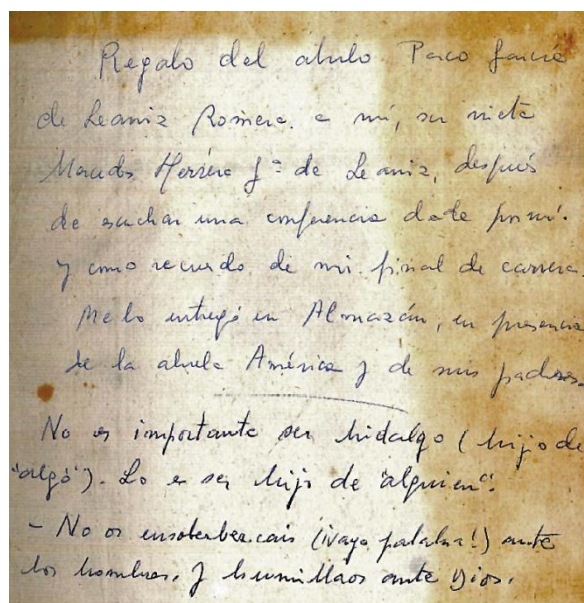 Regalo del abuelo Paco García
de Leaniz Romera. a mí, su nieta
Mercedes Herrera Gª de Leaniz, después
de escuchar una conferencia dada por mí.
y como recuerdo de mi final de carrera.
Me lo entregó en Almazán, en presencia
de la abuela América y de mis padres.
No es importante ser hidalgo (hijo de
"algo"). Lo es ser hijo de "alguien".
- No os ensoberbezcáis (¡vaya palabra!) ante
los hombres. y humillaos ante Dios.